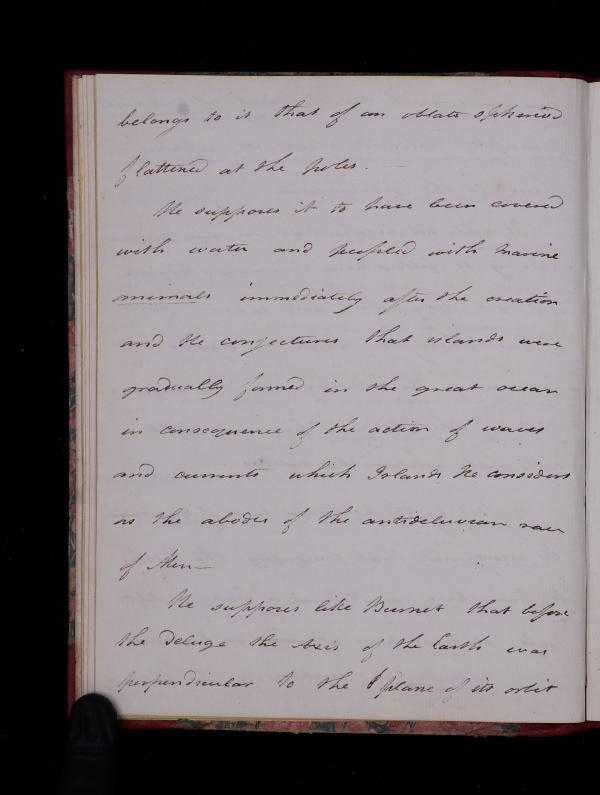 belongs to it that of an oblate spheriod
flattened at the poles.
He supposes it to have been covered
with water and peopled with marine
animals immediately after the creation
and He conjectures that islands were
gradually formed in the great ocean
in consequence of the action of waves
and currents which Islands He considers
as the abodes of the antideluvian race
of Men—
He supposes like Burnet that before
the Deluge the Axis of the Earth was
perpendicular to the plane of its orbit